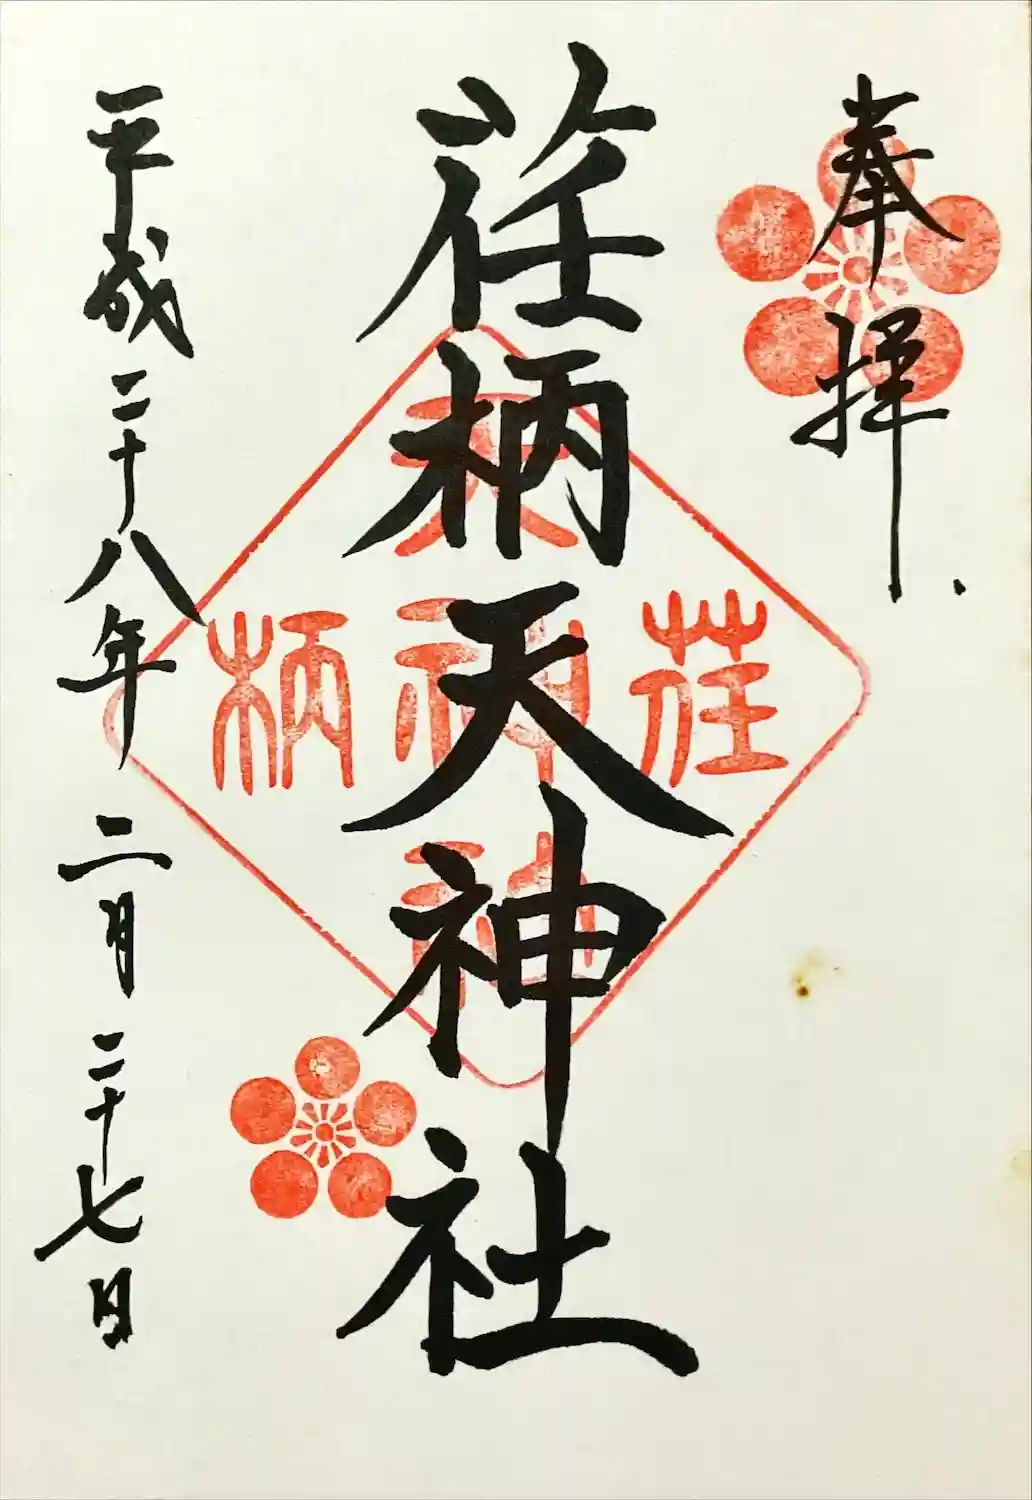 奉拝
荏柄天神社
荏柄
天神社
平成二十八年 二月 二十七日